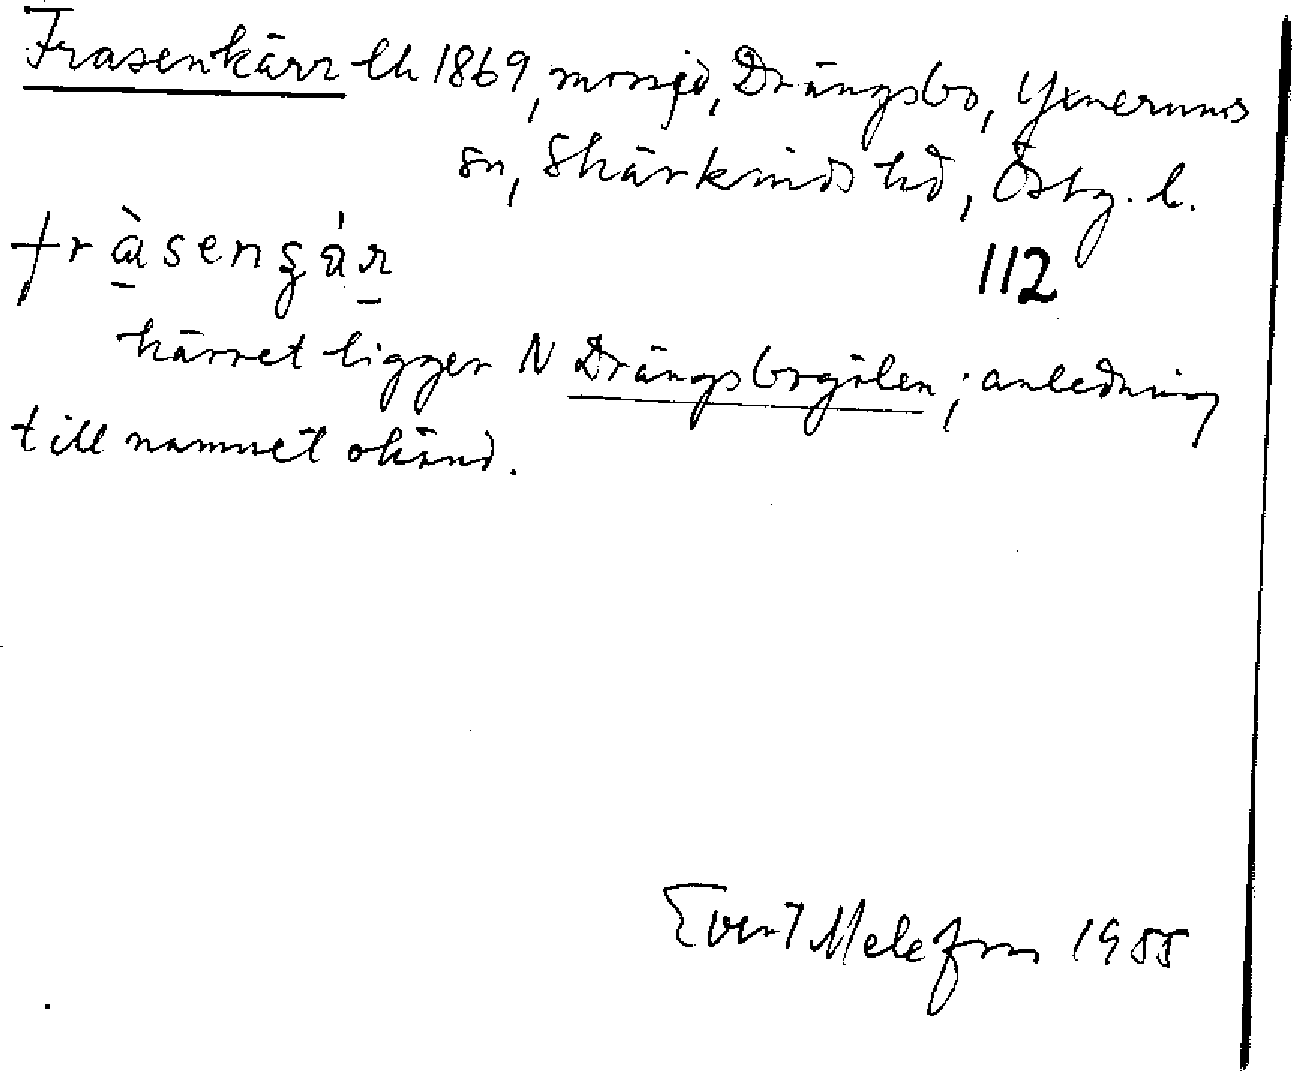 Frasenkärr lh 1869, mossjö, Drängsbo, Yxnerums
sn, Skärkinds hd, Östg. l.
fràsengár
112
kärret ligger N Drängsbogölen; anledning
till namnet okänd.
Evert Melefors 1955